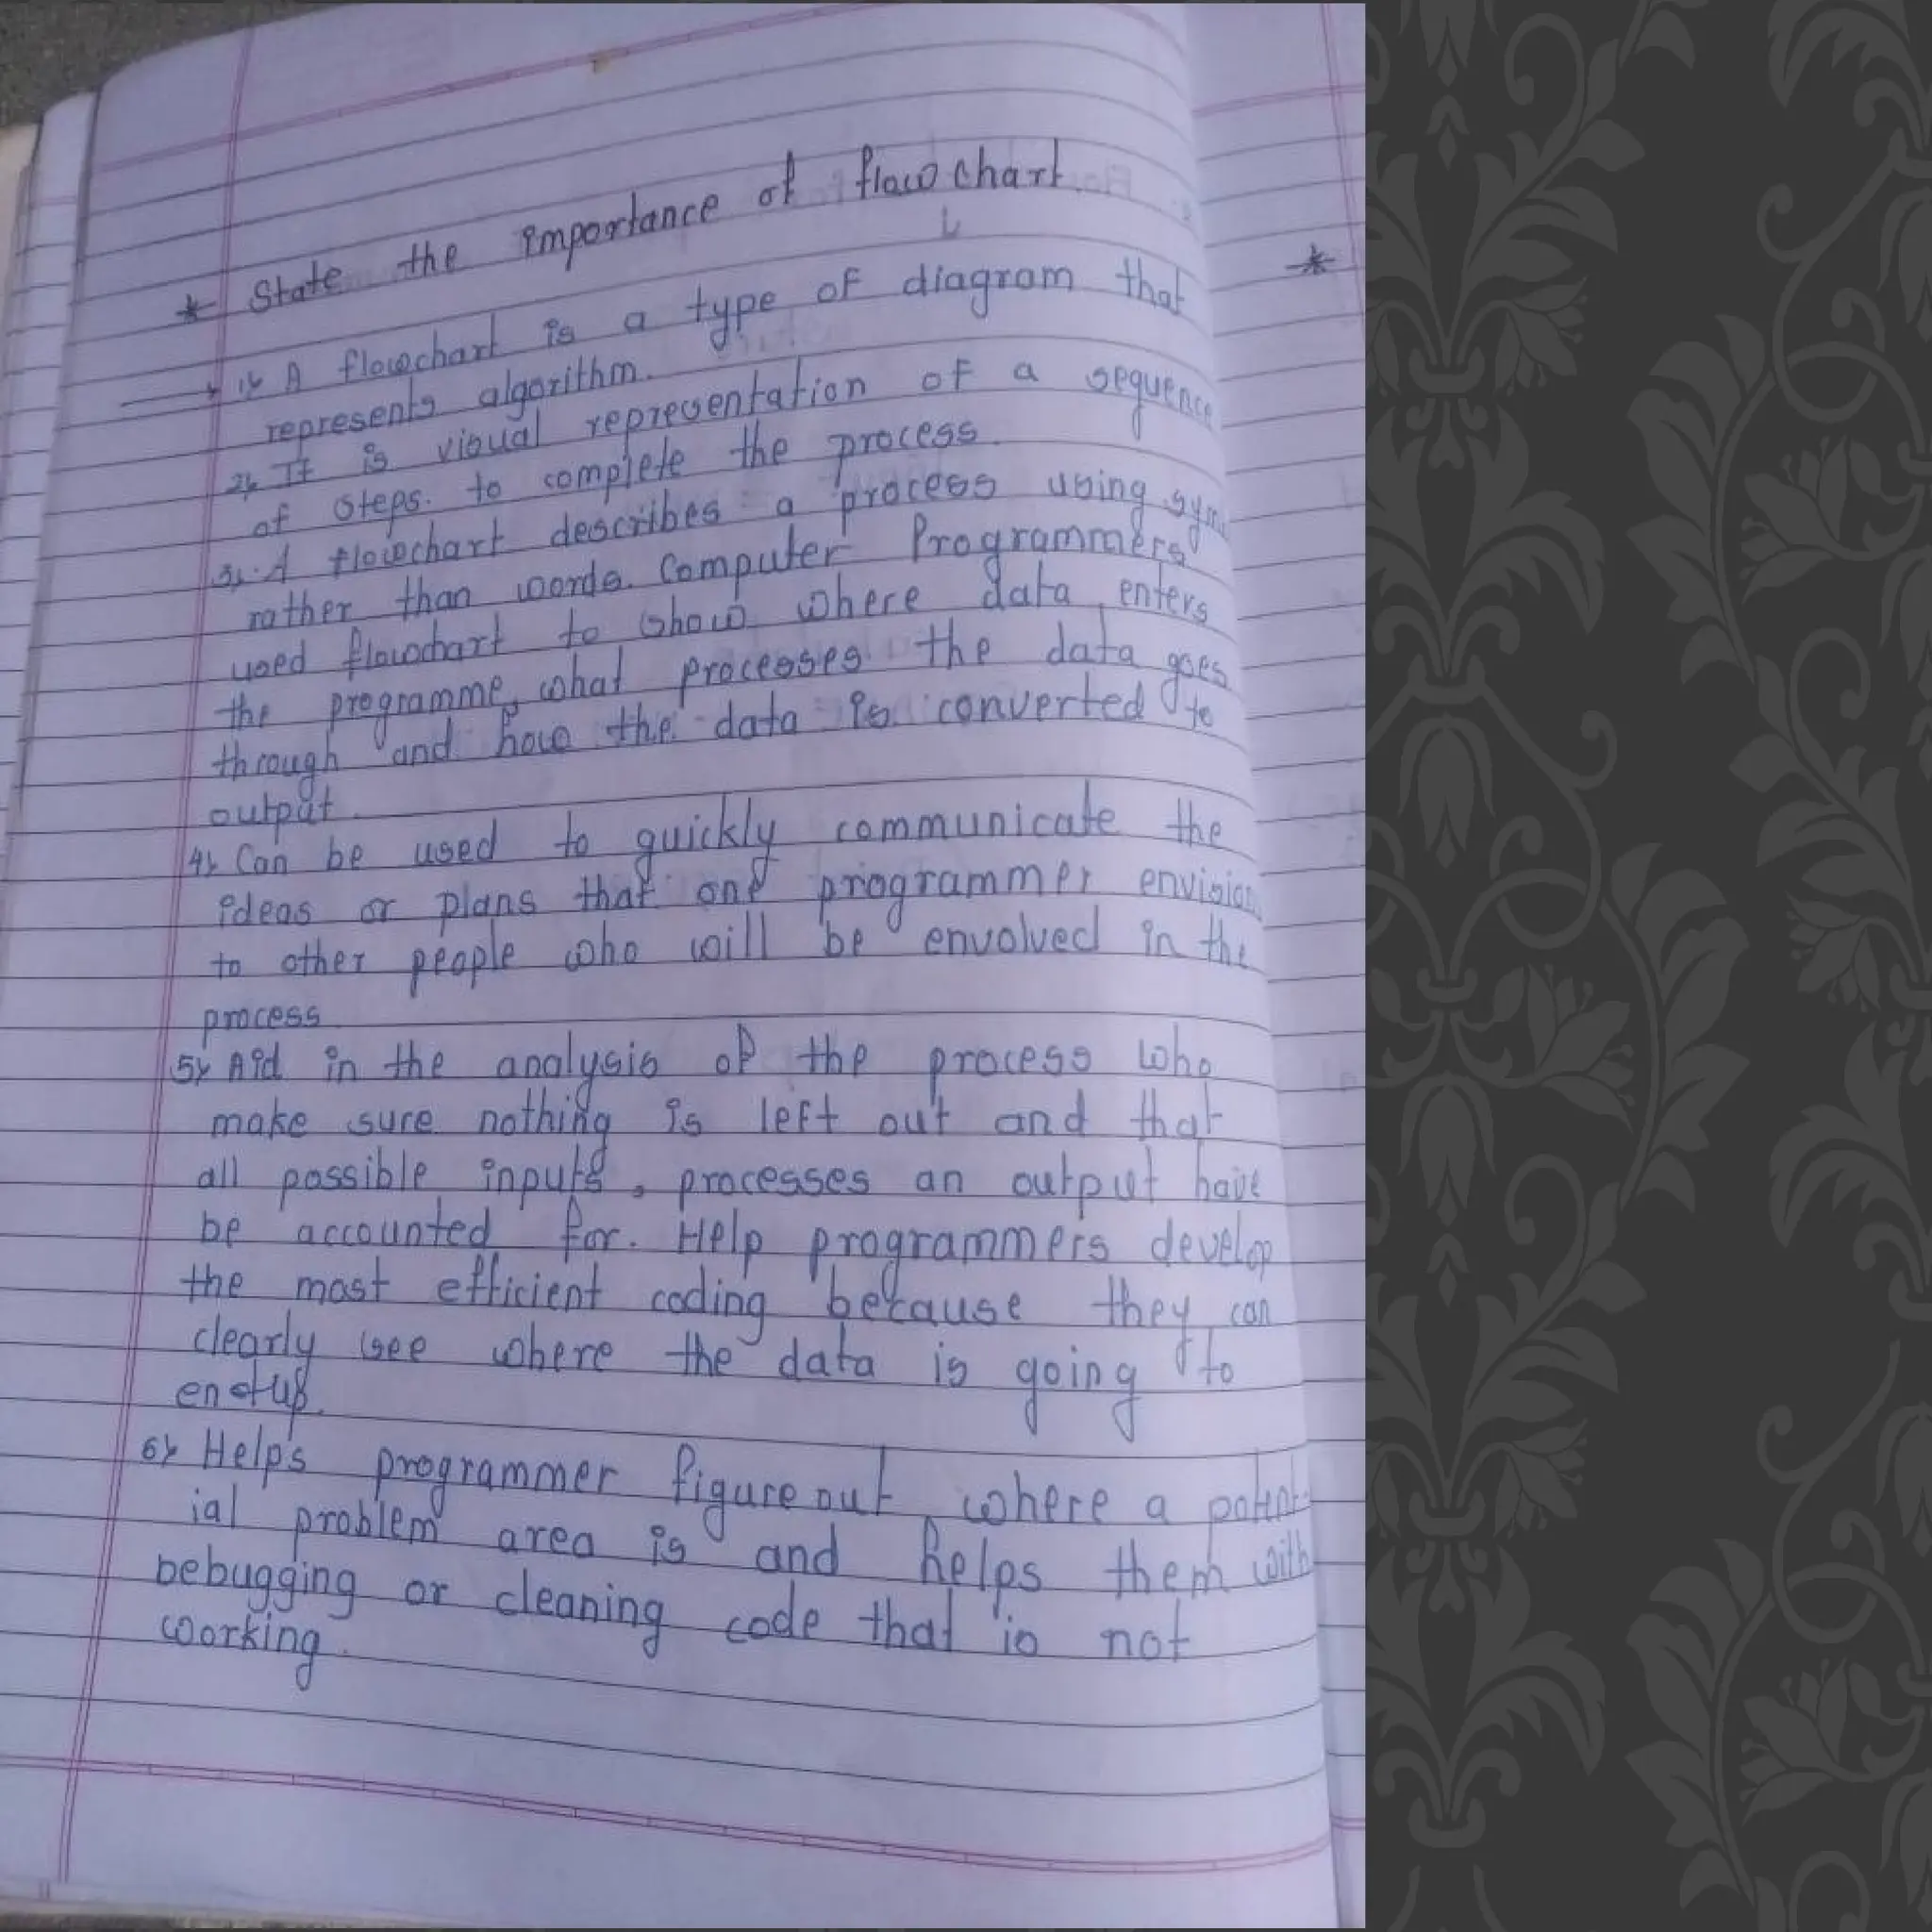 * State the importance of flowchart.
→ 1) A flowchart is a type of diagram that
represents algorithm.
2) It is visual representation of a sequence
of steps. to complete the process.
3) A flowchart describes a process using
rather than words. Computer Programmers
used flowchart to show where data enters
the programme, what processes the data goes
through and how the data is converted to
output.
4) Can be used to quickly communicate the
ideas or plans that one programmer envision
to other people who will be envolved in the
process
5) Aid in the analysis of the process who
make sure nothing is left out and that
all possible inputs, processes an output have
be accounted for. Help programmers develop
the most efficient coding because they can
clearly see where the data is going to
end up.
6) Help's programmer figure out where a potent-
ial problem area is and helps them with
bebugging or cleaning code that is not
working.
*